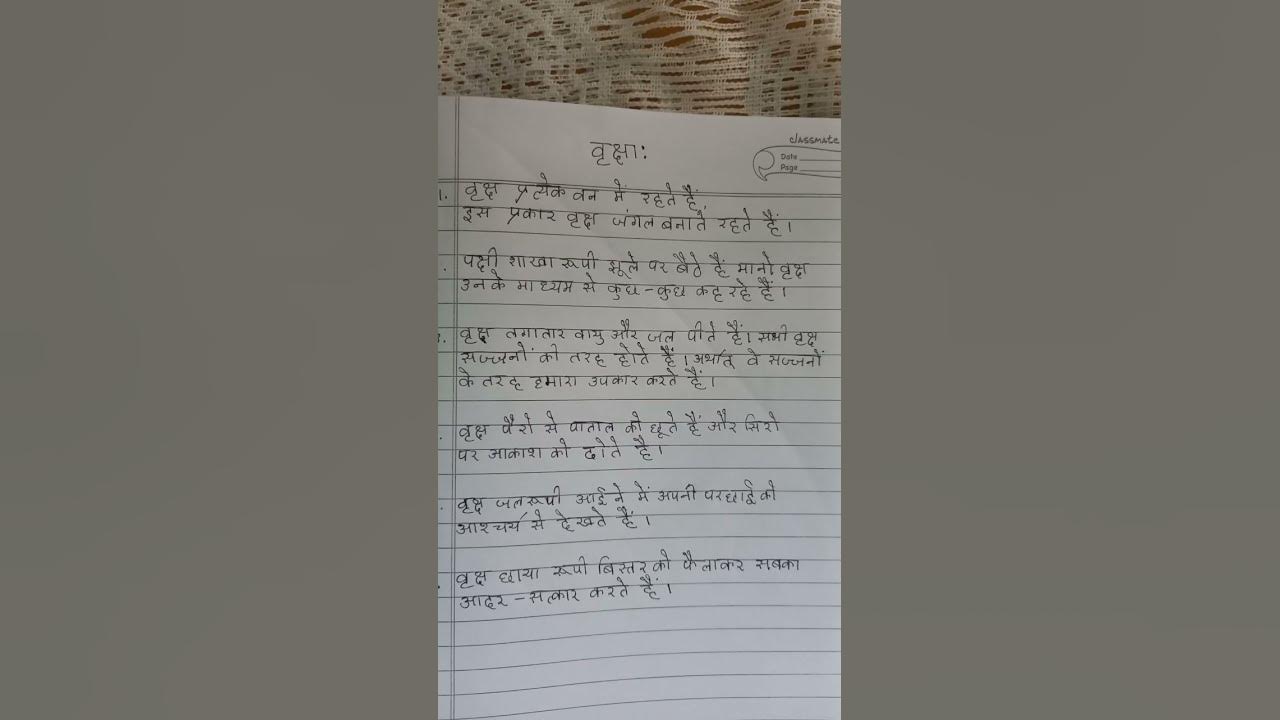 classmate
Date
Page
वृक्षा:
1. वृक्ष प्रत्येक वन में रहते हैं,
इस प्रकार वृक्ष जंगल बनाते रहते हैं।
पक्षी शाखा रूपी झूले पर बैठे हैं मानो वृक्ष
उनके माध्यम से कुछ-कुछ कह रहे हैं।
वृक्ष लगातार वायु और जल पीते हैं। सभी वृक्ष
सज्जनों की तरह होते हैं। अर्थात् वे सज्जनों
के तरह हमारा उपकार करते हैं।
वृक्ष पैरो से पाताल को छूते हैं और सिरो
पर आकाश को ढोते है।
वृक्ष जलरूपी आईने में अपनी परछाई को
आश्चर्य से देखते हैं।
वृक्ष छाया रूपी बिस्तर को फैलाकर सबका
आदर-सत्कार करते हैं।